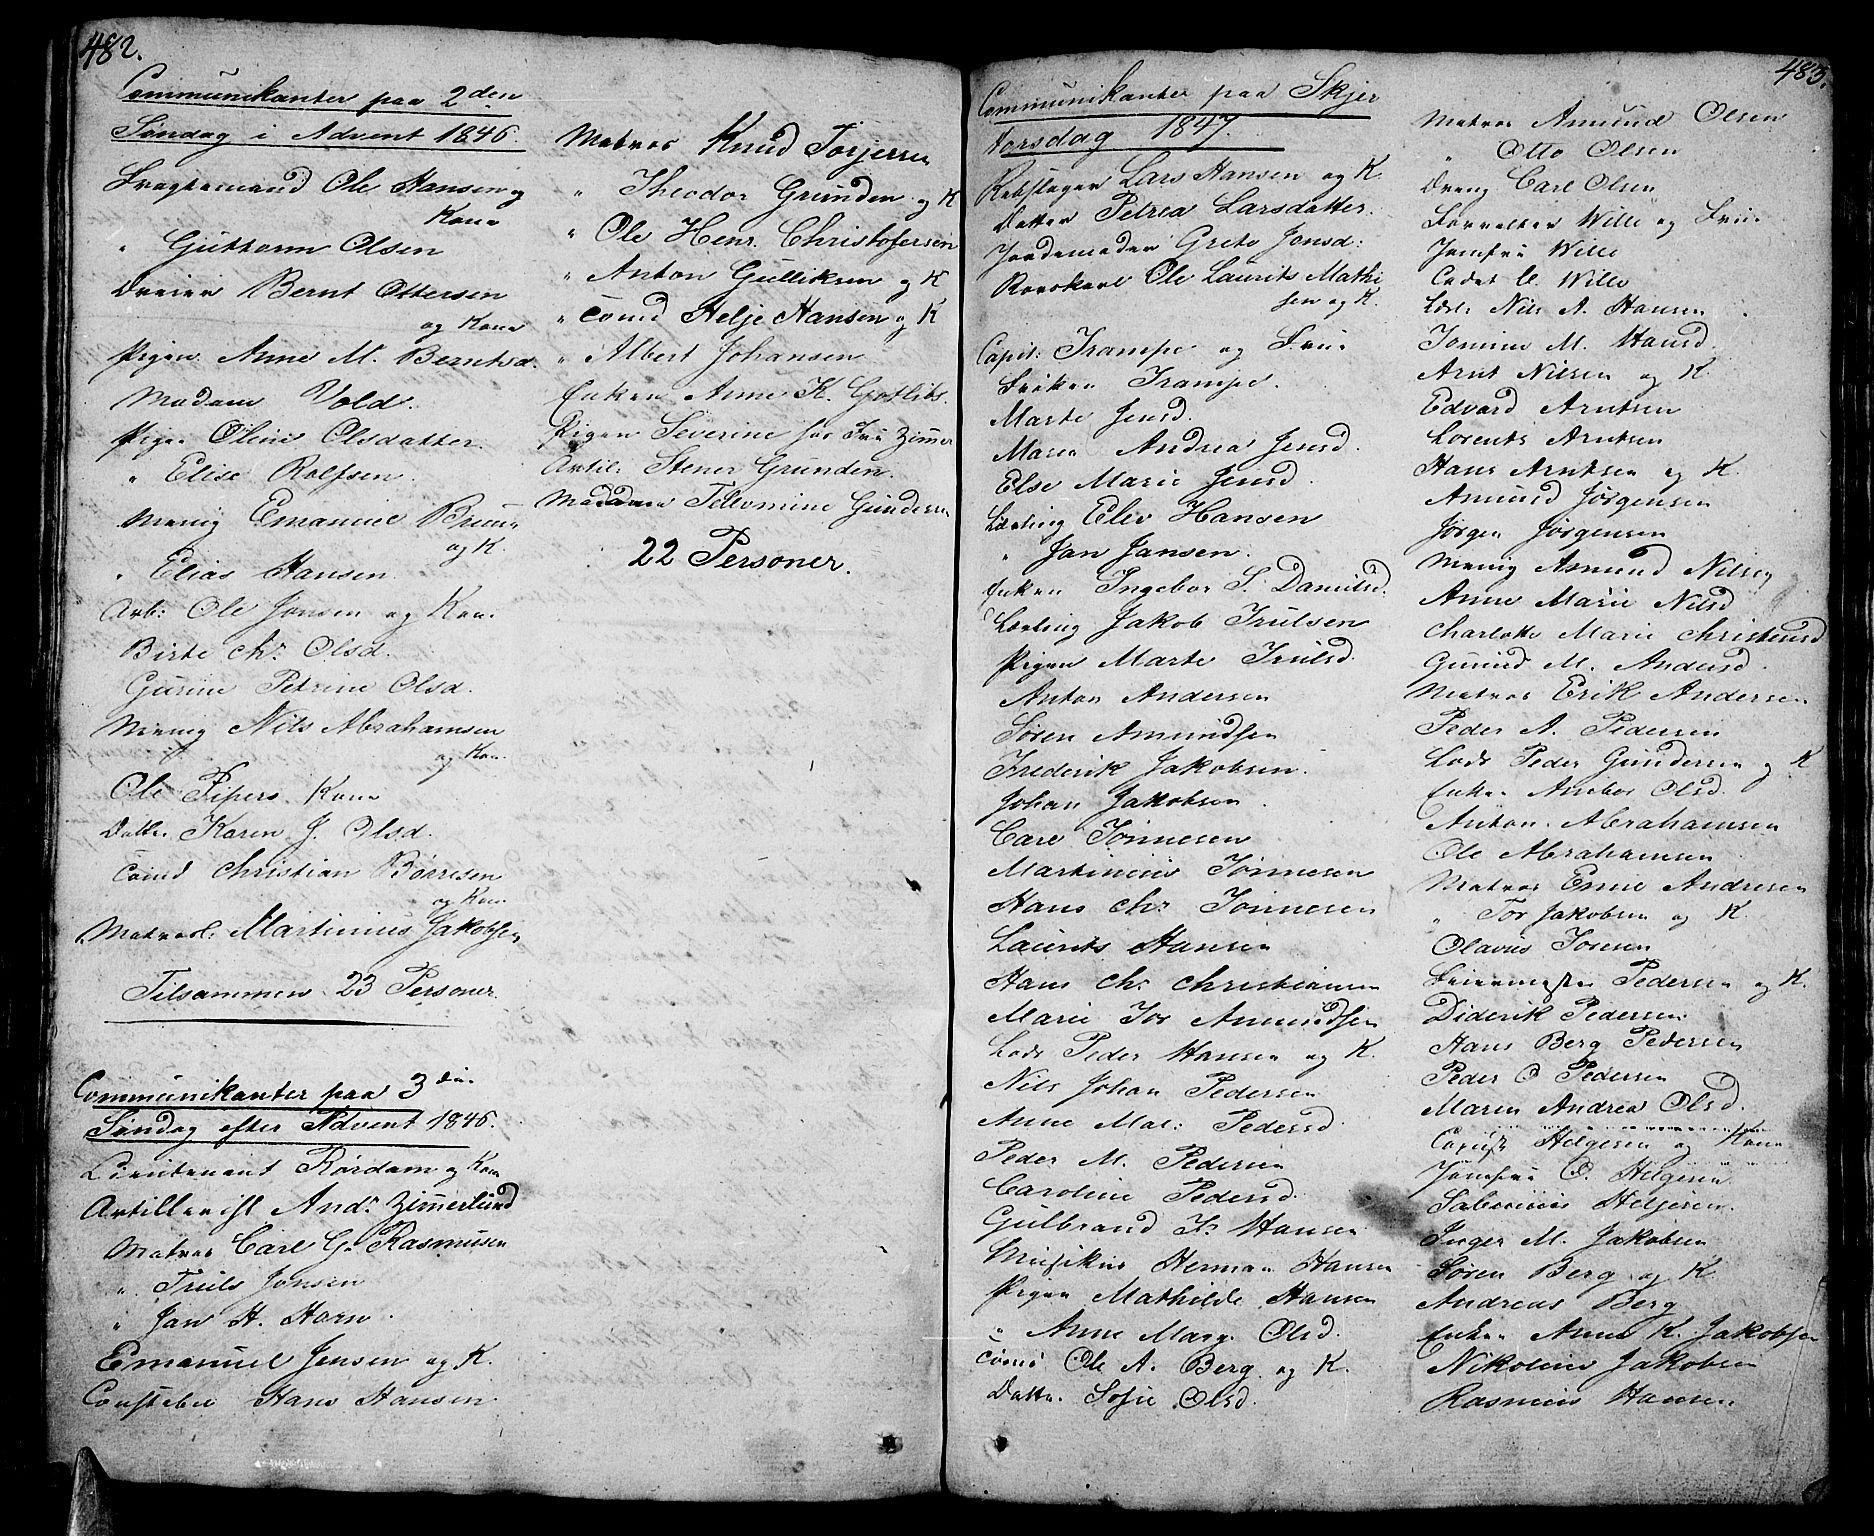 482.
Communikanter paa 2den
Søndag i Advent 1846.
Fragtemand Ole Hansen og
Kone
" Guttorm Olsen
Dreier Bernt Ottersen
og Kone
Pigen Anne M. Berntsd.
Madam Vold.
Pigen Oline Olsdatter.
" Elise Rolfsen.
Menig Emanuel Bruun
og K.
" Elias Hansen
Arb: Ole Jonsen og Kone
Birte Chr. Olsd.
Gurine Petrine Olsd.
Menig Nils Abrahamsen
og Kone.
Ole Pipers Kone
Datter Karen J. Olsd.
Cond Christian Børresen
og Kone
Matros: Martinius Jakobsen
Tilsammen 23 Personer.
Communikanter paa 3die
Søndag efter Advent 1846.
Lieutenant Rørdam og Kone
Artillerist And: Zimerlund
Matros Carl G. Rasmusen
" Truls Jonsen
" Jan H. Horn.
Emanuel Jensen og K.
Constabel Hans Hansen.
Matros Knud Torjersen
" Theodor Grunden og K
" Ole Henr. Christofersen
" Anton Gulliksen og K
" Cond Helje Hansen og K
" Albert Johansen
Enken Anne K. Gotlibs.
Pigen Severine hos Fru Zimer
Artil: Stener Grunden.
Madam Tellomine Gundersen
22 Personer.
483.
Communikanter paa Skjer
torsdag 1847.
Rebslager Lars Hansen og K.
Datter Petrea Larsdatter.
Jordemoder Grete Jensd:
Rorskarl Ole Laurits Mathi
sen og K.
Capit: Trampe og Frue
Frøken Trampe.
Marte Jensd.
Maren Andrea Jensd.
Else Marie Jensd.
Lærling Elev Hansen
" Jan Jansen.
Enken Ingebor S. Danielsd.
Lærling Jakob Trulsen
Pigen Marte Trulsd.
Anton Andersen
Søren Amundsen
Frederik Jakobsen.
Johan Jakobsen.
Carl Tønnesen
Martinius Tønnesen
Hans Chr. Tønnesen
Laurits Hansen
Hans Chr. Christiansen
Marie Tor Amundsen
Lods Peder Hansen og K.
Nils Johan Pedersen
Anne Mar: Pedersd.
Peder M. Pedersen
Caroline Pedersd.
Gulbrand F. Hansen
Musikus Herman Hansen
Pigen Mathilde Hansen
" Anne Marg. Olsd.
Cond Ole A. Berg og K.
Datter Sofie Olsd.
Matros Amund Olsen
" Otto Olsen
Dreng Carl Olsen
Forvalter Wille og Frue
Jomfru Wille
Cadet C. Wille
Lods Nils A. Hansen
Jomine M. Hansd.
Arnt Nilsen og K.
Edvard Arntsen
Lorents Arntsen
Hans Arntsen og K.
Amund Jørgensen
Jørgen Jørgensen
Menig Asmund Nilsen
Anne Marie Nilsd
Charlotte Marie Christensd
Gunild M. Andersd.
Matros Erik Andersen
Peder A. Pedersen
Lods Peder Gundersen og K
Enken Anebor Olsd.
Anton Abrahamsen
Ole Abrahamsen
Matros Enne Andresen
" Tor Jakobsen og K.
Olavus Toresen
Feiermester Pedersen og K.
Diderik Pedersen.
Hans Berg Pedersen
Peder O Pedersen
Maren Andrea Olsd.
Capit Helgesen og Kone
Jomfru O. Helgesen
Saberinius Helgesen.
Inger M. Jakobsen
Søren Berg og K
Andreas Berg
Enken Anne K. Jakobsen
Nikoline Jakobsen
Rasmus Hansen